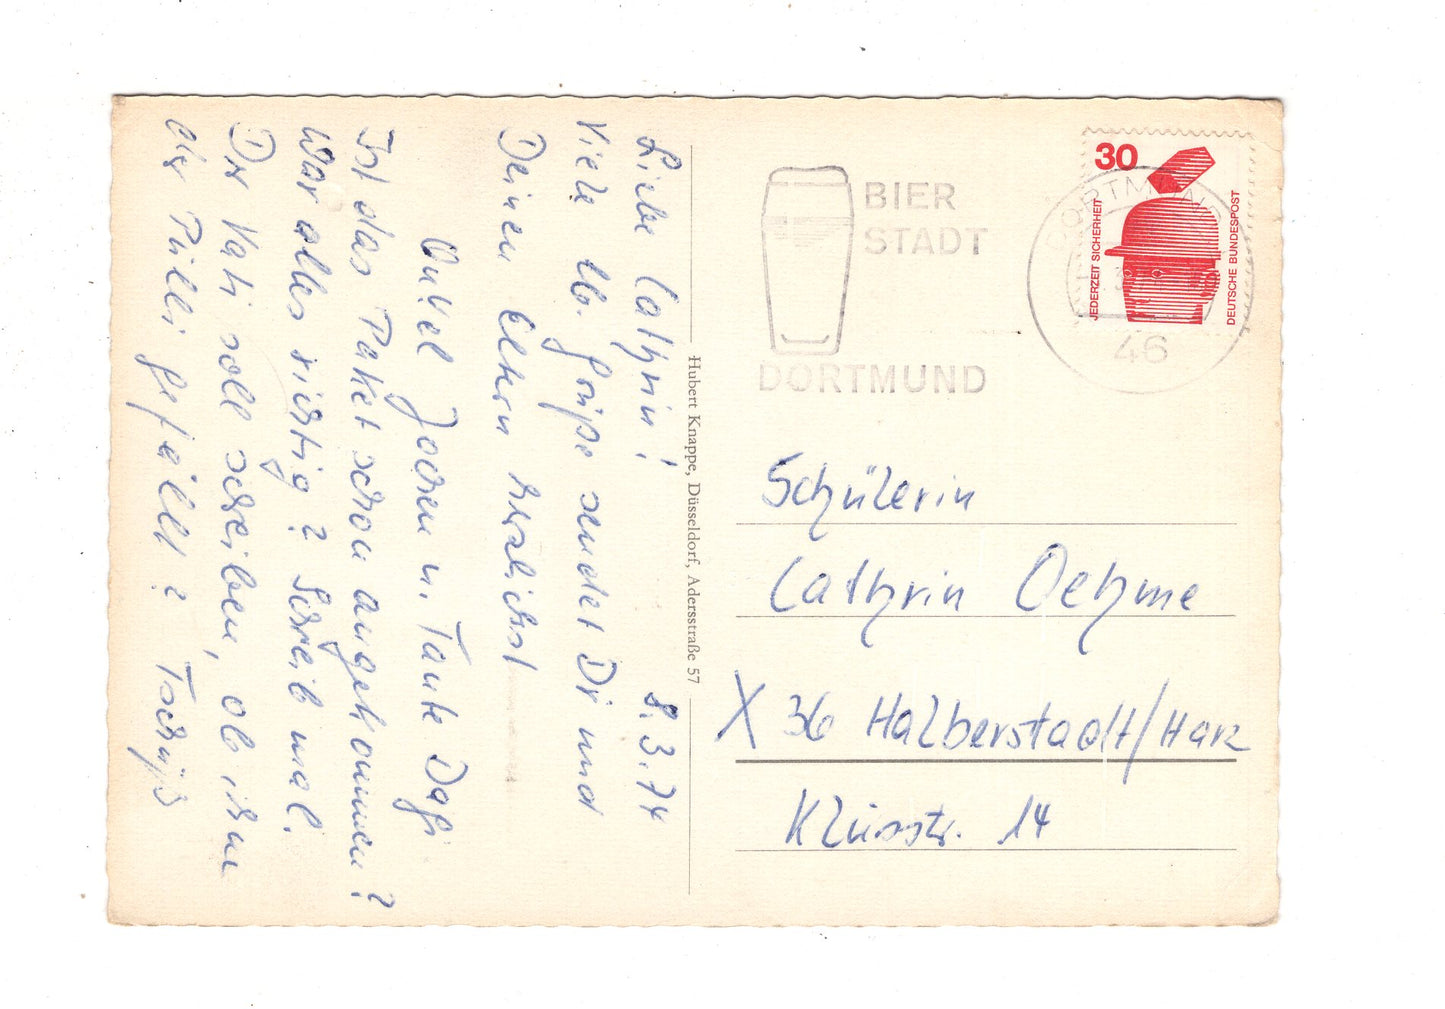 Liebe Cathrin! 8.3.74
Viele lb. Grüße sendet Dir und
Deinen Eltern herzlichst
Onkel Jochen u. Tante Dagi
Ist das Paket schon angekommen?
War alles richtig? Schreib mal.
Der Vati soll schreiben, ob ihm
der Pulli gefällt? Tschüß
Hubert Knappe, Düsseldorf, Adersstraße 57
BIER
STADT
DORTMUND
DORTMUND
46
30
JEDERZEIT SICHERHEIT
DEUTSCHE BUNDESPOST
Schülerin
Cathrin Oehme
X 36 Halberstadt/Harz
Klusstr. 14